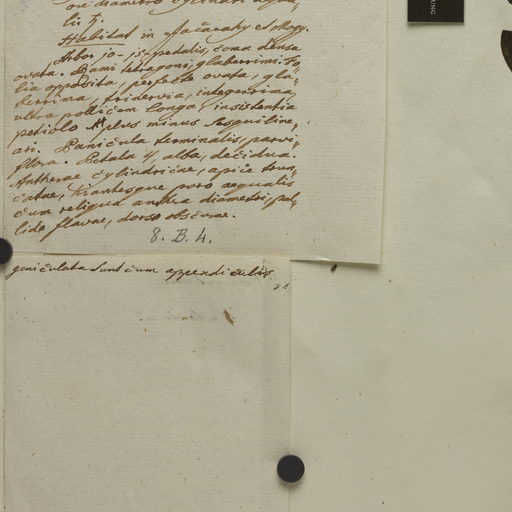 ore diametro cylindri aequa-
lii ♄.
Habitat in Jacaraby et Mogy.
Arbor 10-15-pedalis, coma densa
ovata. Rami tetragoni, glaberrimi. Fo-
lia opposita, perfecte ovata, gla-
berrima, trinervia, integerrima,
ultra pollicem longa, insistentia
petiolo plus minus sesquiline-
ari. Panicula terminalis, parvi-
flora. Petala 4, alba, decidua.
Antherae cylindricae, apice trun-
catae, hiantesque poro aequalis
cum reliqua anthera diametri, pal-
lide flavae, dorso obscurae.
8. B. 4.
geniculata sunt cum appendiculis